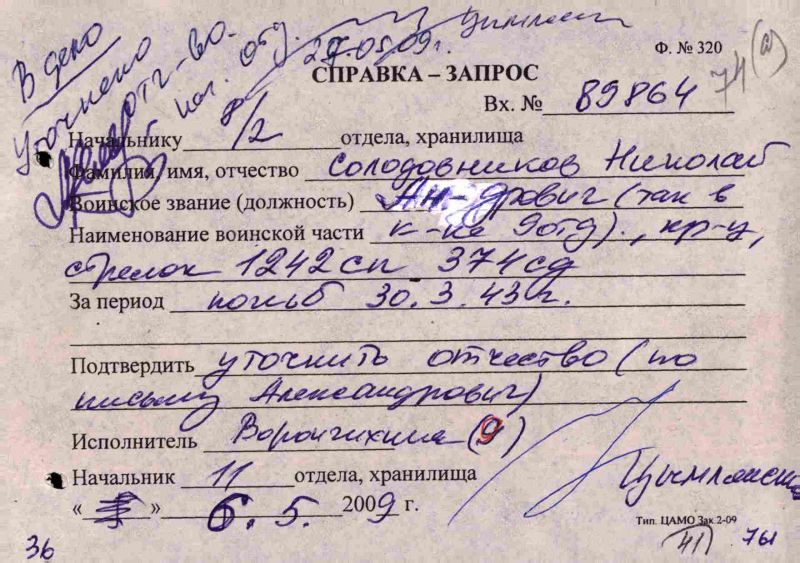 В дело
Уточнено
отг-во.
нач. отд.
27.05.09г.
Ф. № 320
74(а)
СПРАВКА – ЗАПРОС
Вх. № 89864
Начальнику 8/2 отдела, хранилища
Фамилия, имя, отчество Солодовников Николай
Воинское звание (должность) Ан-дрович (так в
Наименование воинской части к-ке 9отд)., кр-ц,
стрелок 1242сп 374сд
За период погиб 30.3.43г.
Подтвердить уточнить отчество (по
письму Александрович)
ИсполнительВорончихина (9)
Начальник 11 отдела, хранилища
« » 6.5. 2009 г.
Тип. ЦАМО Зак.2-09
36
41)
76